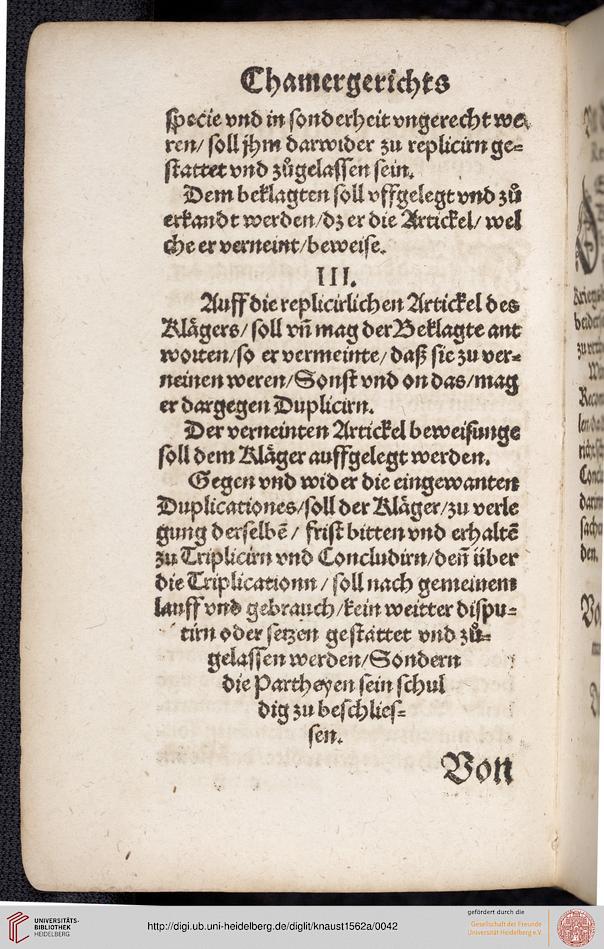 Chamergerichts
specie vnd in sonderheit vngerecht we
ren/ soll jhm darwider zu replicirn ge=
stattet vnd zůgelassen sein.
Dem beklagten soll vffgelegt vnd zů
erkandt werden/dz er die Artickel/ wel
che er verneint/beweise.
III.
Auff die replicirlichen Artickel des
Klägers/ soll vñ mag der Beklagte ant
worten/so er vermeinte/ daß sie zu ver=
neinen weren/Sonst vnd on das/mag
er dargegen Duplicirn.
Der verneinten Artickel beweisunge
soll dem Kläger auffgelegt werden.
Gegen vnd wider die eingewanten
Duplicationes/soll der Kläger/zu verle
gung derselbẽ / frist bitten vnd erhaltẽ
zu Triplicirn vnd Concludirn/deñ über
die Triplicationn / soll nach gemeinem
lauff vnd gebrauch/kein weitter dispu=
tirn oder setzen gestattet vnd zů=
gelassen werden/Sondern
die Partheyen sein schul
dig zu beschlies=
sen.
Von
UNIVERSITÄTS-
BIBLIOTHEK
HEIDELBERG
http://digi.ub.uni-heidelberg.de/diglit/knaust1562a/0042
gefördert durch die
Gesellschaft der Freunde
Universität Heidelberg e.V.